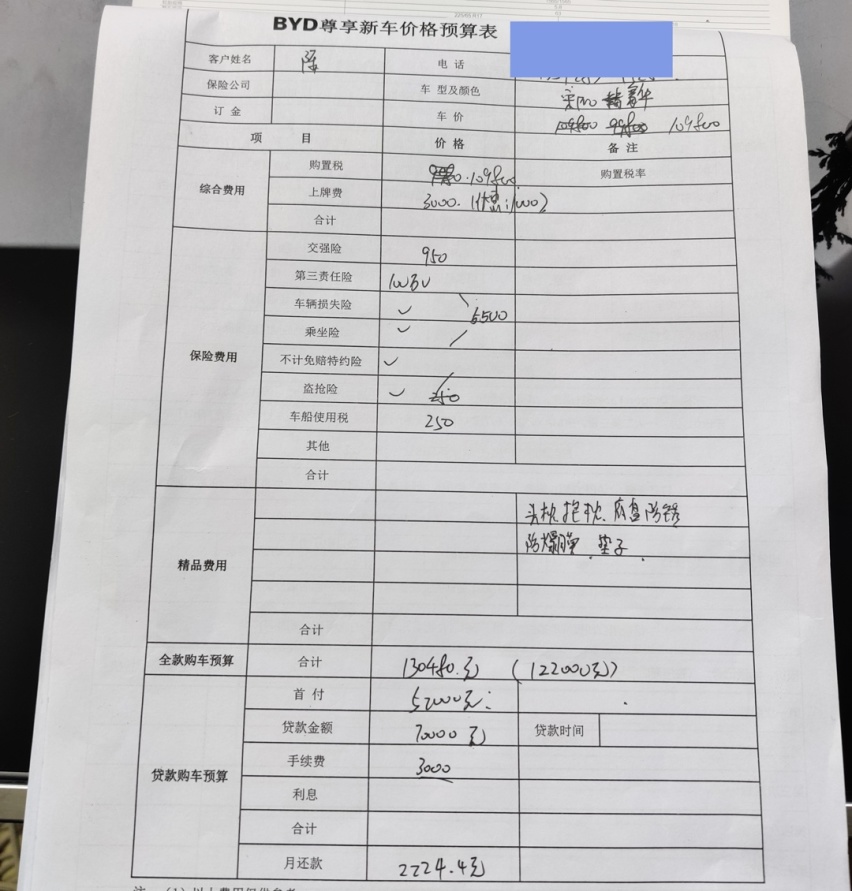 BYD尊享新车价格预算表
客户姓名 陈 电 话
保险公司 车 型及颜色
订 金 车 价 109800 99800 109800
项 目 价 格 备 注
综合费用 购置税 109800. 购置税率
上牌费 3000.
合计
保险费用 交强险 950
第三责任险 100万
车辆损失险 ✓ 5500
乘坐险 ✓
不计免赔特约险 ✓
盗抢险 ✓ 250
车船使用税 250
其他
合计
精品费用 头枕.抱枕、底盘防锈
防爆膜、垫子.
合计
全款购车预算 合计 130480.元 (122000元)
贷款购车预算 首 付 52000元
贷款金额 70000元 贷款时间
手续费 3000
利息
合计
月还款 2224.4元